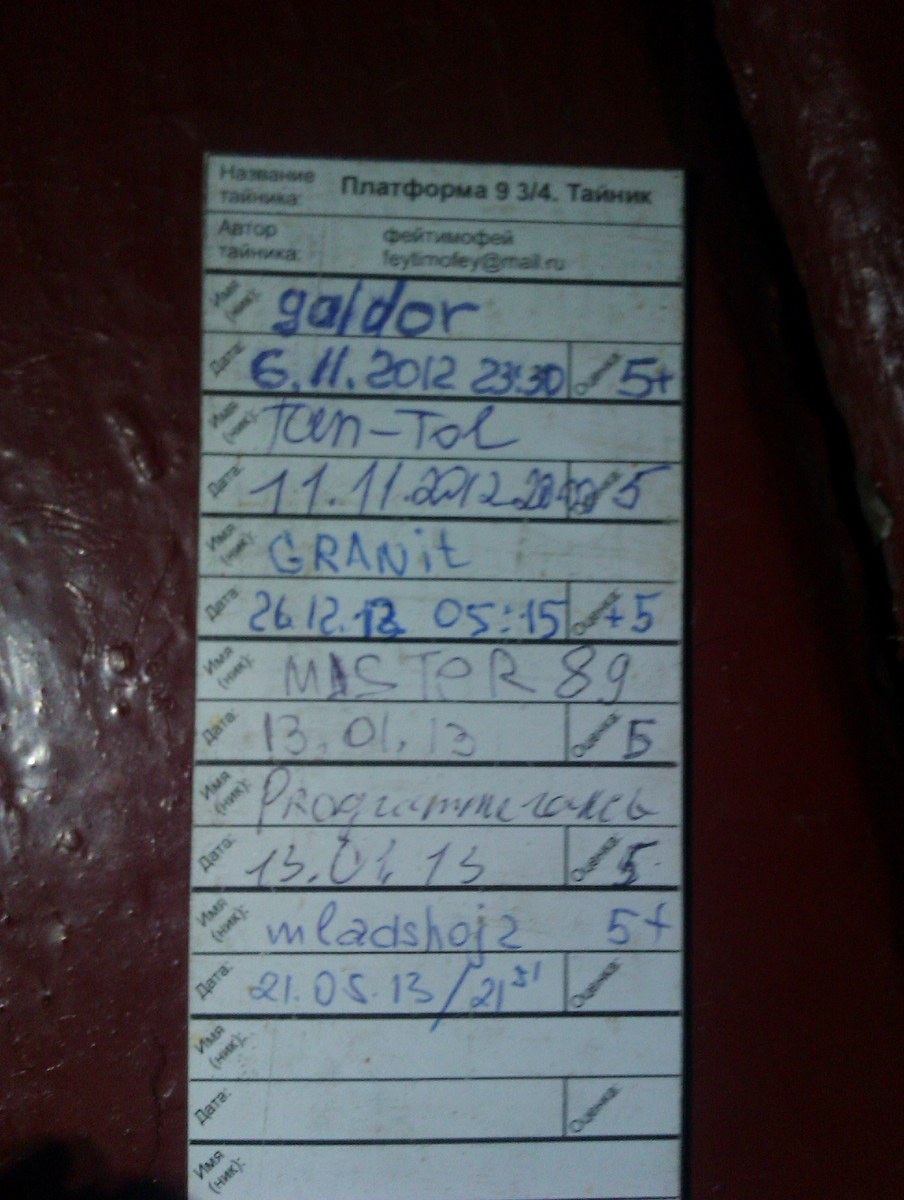 Название тайника: Платформа 9 3/4. Тайник
Автор тайника: фейтимофей
feytimofey@mail.ru
Имя (ник): galdor
Дата: 6.11.2012 23:30 Оценка: 5+
Имя (ник): Tan-Tol
Дата: 11.11.2012 Оценка: 5
Имя (ник): GRANit
Дата: 26.12.12 05:15 Оценка: +5
Имя (ник): MISTER 89
Дата: 13.01.13 Оценка: 5
Имя (ник):
Дата: 13.01.13 Оценка: 5
Имя (ник): mladshoj2 5+
Дата: 21.05.13/21 Оценка:
Имя (ник):
Дата: Оценка:
Имя (ник):